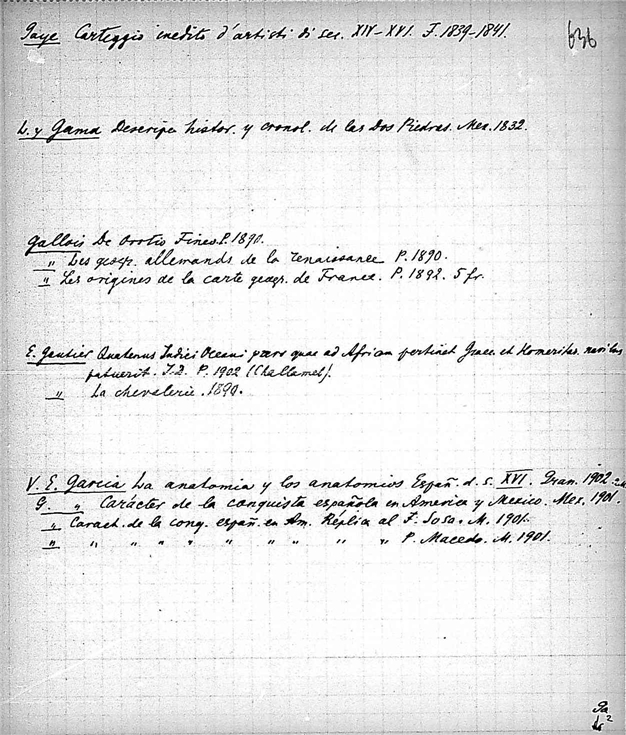 Gaye Carteggio inedito d'artisti di sec. XIV-XVI. F. 1839-1841.
636
L. y Gama Descripc histor. y cronol. de las Dos Piedras. Mex. 1832.
Gallois De Orotio Fineo P. 1890.
" Les geogr. allemands de la renaissance P. 1890.
" Les origines de la carte geogr. de France. P. 1892. 5 fr.
E. Gautier Quatenus Indici Oceani pars quae ad African pertinet Graec. et Homeritas. navibus
patuerit. I.D. P. 1902 (Challamel).
" La chevalerie. 1890.
V. E. Garcia La anatomia y los anatomios Españ. d. s. XVI. Gran. 1902.
G. " Carácter de la conquista española en America y Mexico. Mex. 1901.
" Caract. de la conq. españ. en Am. Réplica al F. Sosa. M. 1901.
" " " " " " " " " " P. Macedo. M. 1901.
Ga
2